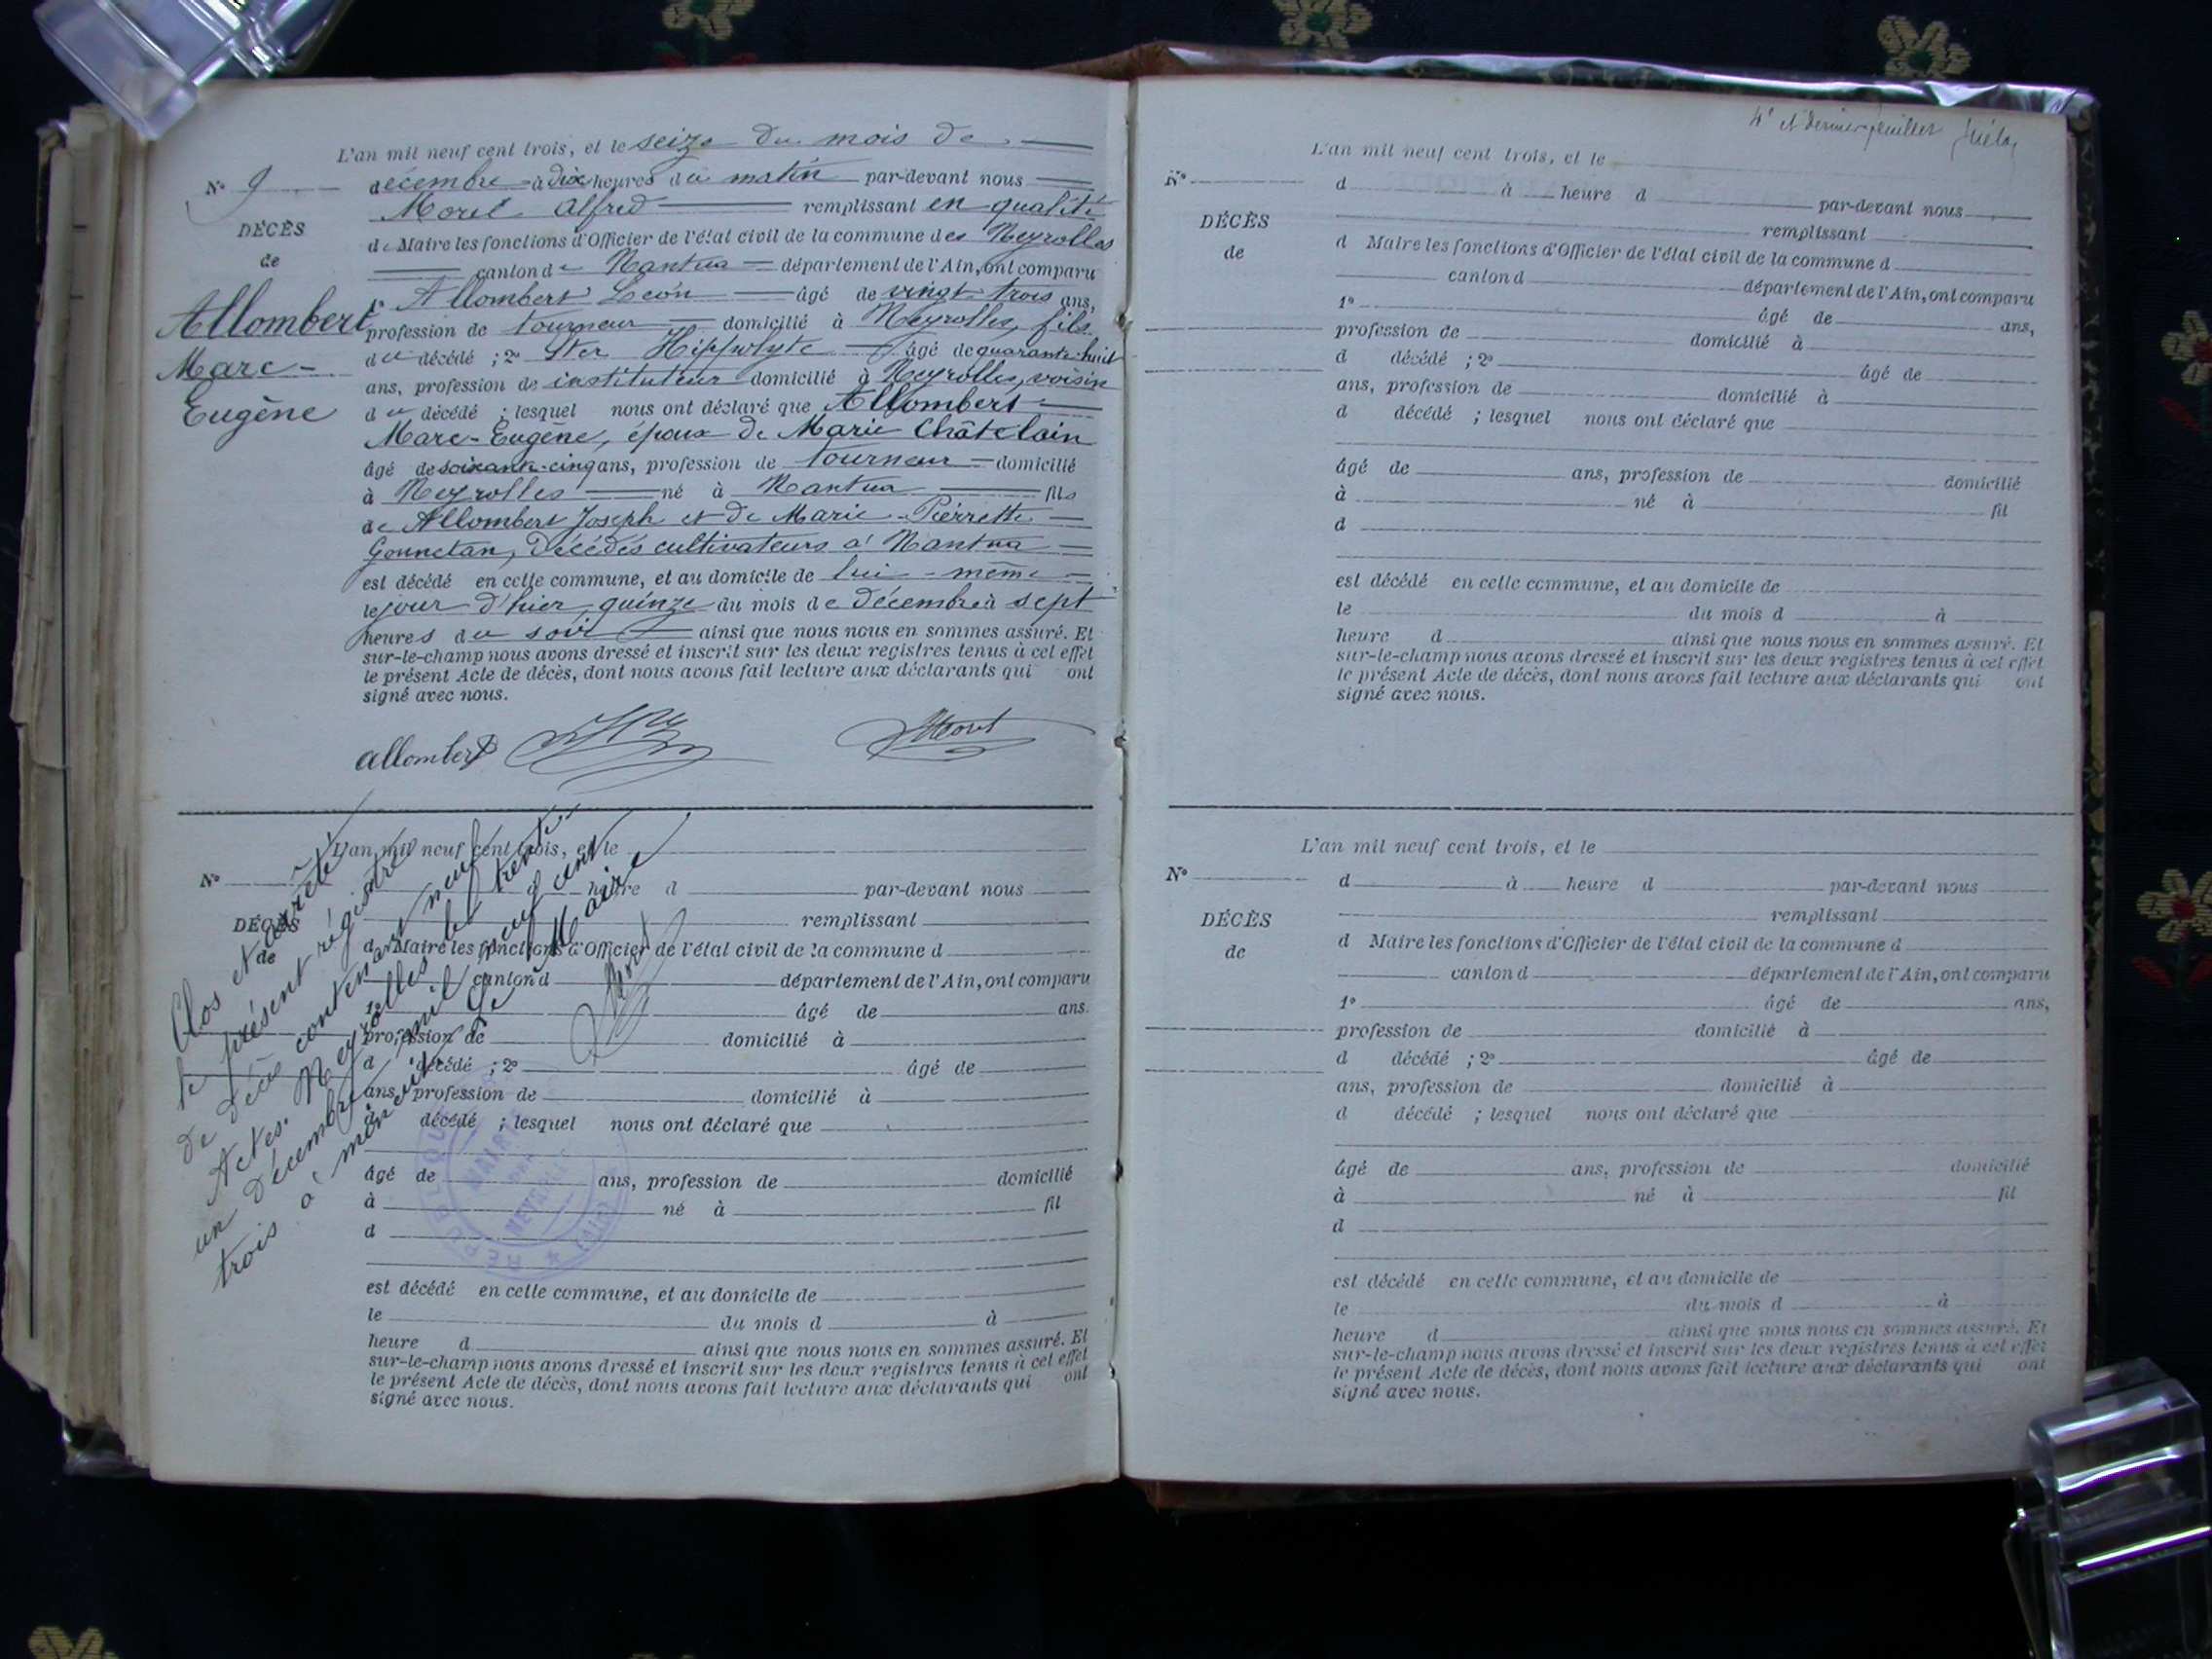 L'an mil neuf cent trois, et le seize du mois de
N° 9 décembre à dix heures du matin par-devant nous
Morel Alfred remplissant en qualité
DÉCÈS
de Maire les fonctions d'Officier de l'état civil de la commune des Neyrolles
de
canton de Nantua département de l'Ain, ont comparu
1° Allombert Léon âgé de vingt-trois ans,
Allombert
profession de tourneur domicilié à Neyrolles, fils
Marc-
du décédé ; 2° Hippolyte âgé de quarante-huit
ans, profession de instituteur domicilié à Neyrolles, voisin
Eugène
du décédé ; lesquel nous ont déclaré que Allombert
Marc-Eugène, époux de Marie Châtelain
âgé de soixante-cinq ans, profession de tourneur domicilié
à Neyrolles né à Nantua fils
de Allombert Joseph et de Marie-Pierrette
Gonnetan, décédés cultivateurs à Nantua
est décédé en cette commune, et au domicile de lui-même
le jour d'hier, quinze du mois de décembre à sept
heures du soir ainsi que nous nous en sommes assuré. Et
sur-le-champ nous avons dressé et inscrit sur les deux registres tenus à cet effet
le présent Acte de décès, dont nous avons fait lecture aux déclarants qui ont
signé avec nous.
Allombert Morel
L'an mil neuf cent trois, et le
N° à heure d par-devant nous
DÉCÈS
remplissant
de
d Maire les fonctions d'Officier de l'état civil de la commune d
canton d département de l'Ain, ont comparu
1° âgé de ans.
profession de domicilié à
d décédé ; 2° âgé de
ans, profession de domicilié à
d décédé ; lesquel nous ont déclaré que
âgé de ans, profession de domicilié
à né à fil
d
est décédé en cette commune, et au domicile de
le du mois d à
heure d ainsi que nous nous en sommes assuré. Et
sur-le-champ nous avons dressé et inscrit sur les deux registres tenus à cet effet
le présent Acte de décès, dont nous avons fait lecture aux déclarants qui ont
signé avec nous.
Clos et arrêté
le présent régistre
de décès contenant neuf
Actes. Neyrolles, le trente
un Décembre mil neuf cent
trois à minuit Le Maire
Morel
RÉPUBLIQUE
MAIRIE
DES
NEYROLLES
(AIN)
4e et dernier feuillet
L'an mil neuf cent trois, et le
N° d à heure d par-devant nous
DÉCÈS
remplissant
de
d Maire les fonctions d'Officier de l'état civil de la commune d
canton d département de l'Ain, ont comparu
1° âgé de ans,
profession de domicilié à
d décédé ; 2° âgé de
ans, profession de domicilié à
d décédé ; lesquel nous ont déclaré que
âgé de ans, profession de domicilié
à né à fil
d
est décédé en cette commune, et au domicile de
le du mois d à
heure d ainsi que nous nous en sommes assuré. Et
sur-le-champ nous avons dressé et inscrit sur les deux registres tenus à cet effet
le présent Acte de décès, dont nous avons fait lecture aux déclarants qui ont
signé avec nous.
L'an mil neuf cent trois, et le
N° d à heure d par-devant nous
DÉCÈS
remplissant
de
d Maire les fonctions d'Officier de l'état civil de la commune d
canton d département de l'Ain, ont comparu
1° âgé de ans,
profession de domicilié à
d décédé ; 2° âgé de
ans, profession de domicilié à
d décédé ; lesquel nous ont déclaré que
âgé de ans, profession de domicilié
à né à fil
d
est décédé en cette commune, et au domicile de
le du mois d à
heure d ainsi que nous nous en sommes assuré. Et
sur-le-champ nous avons dressé et inscrit sur les deux registres tenus à cet effet
le présent Acte de décès, dont nous avons fait lecture aux déclarants qui ont
signé avec nous.